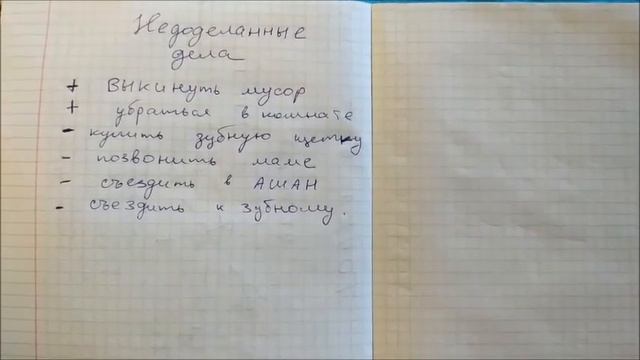 Недоделанные
дела
+ выкинуть мусор
+ убраться в комнате
- купить зубную щетку
- позвонить маме
- съездить в АШАН
- съездить к зубному.